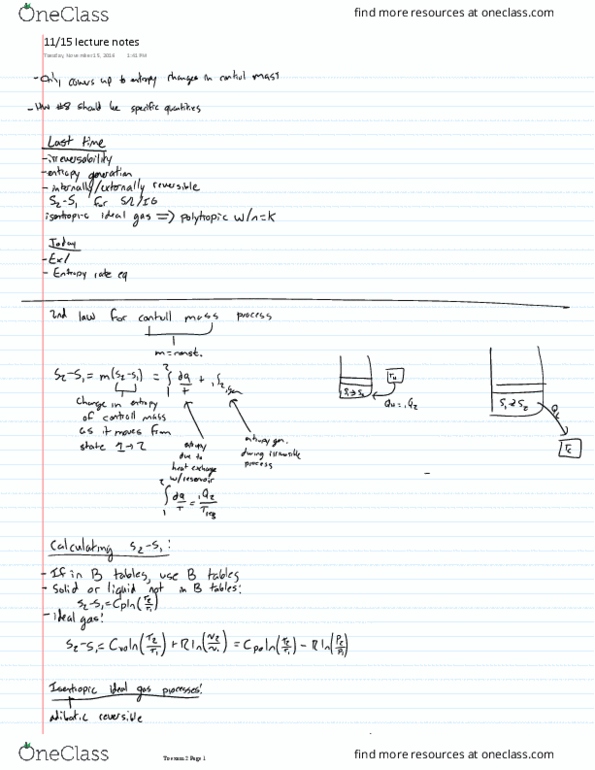 OneClass
find more resources at oneclass.com
11/15 lecture notes
Tuesday, November 15, 2016 1:41 PM
- Only covers up to entropy changes in control mass
- HW #8 should be specific quantities
Last time
- irreversability
- entropy generation
- internally/externally reversible
S₂-S₁ for S/L/IG
isentropic ideal gas => polytopic w/n=k
Today
- Ex/
- Entropy rate eq
2nd law for controll mass process
m=const.
S₂-S₁ = m(s₂-s₁) = ₁∫² dq/T + ₁S₂,gen
change in entropy
of controll mass
as it moves from
state 1→2
entropy
due to
heat exchange
w/reservoir
entropy gen.
during irreversible
process
₁∫² dq/T = ₁Q₂/T
S₁→S₂
T_H
Q_H = ₁Q₂
S₁→S₂
Q_C
T_C
Calculating s₂-s₁:
- If in B tables, use B tables
- Solid or liquid not in B tables:
s₂-s₁=Cp ln(T₂/T₁)
- ideal gas:
s₂-s₁= Cv₀ln(T₂/T₁)+R ln(v₂/v₁) = Cp₀ ln(T₂/T₁) - R ln(P₂/P₁)
Isentropic ideal gas processes:
adibatic reversible
OneClass
find more resources at oneclass.com
Page 1